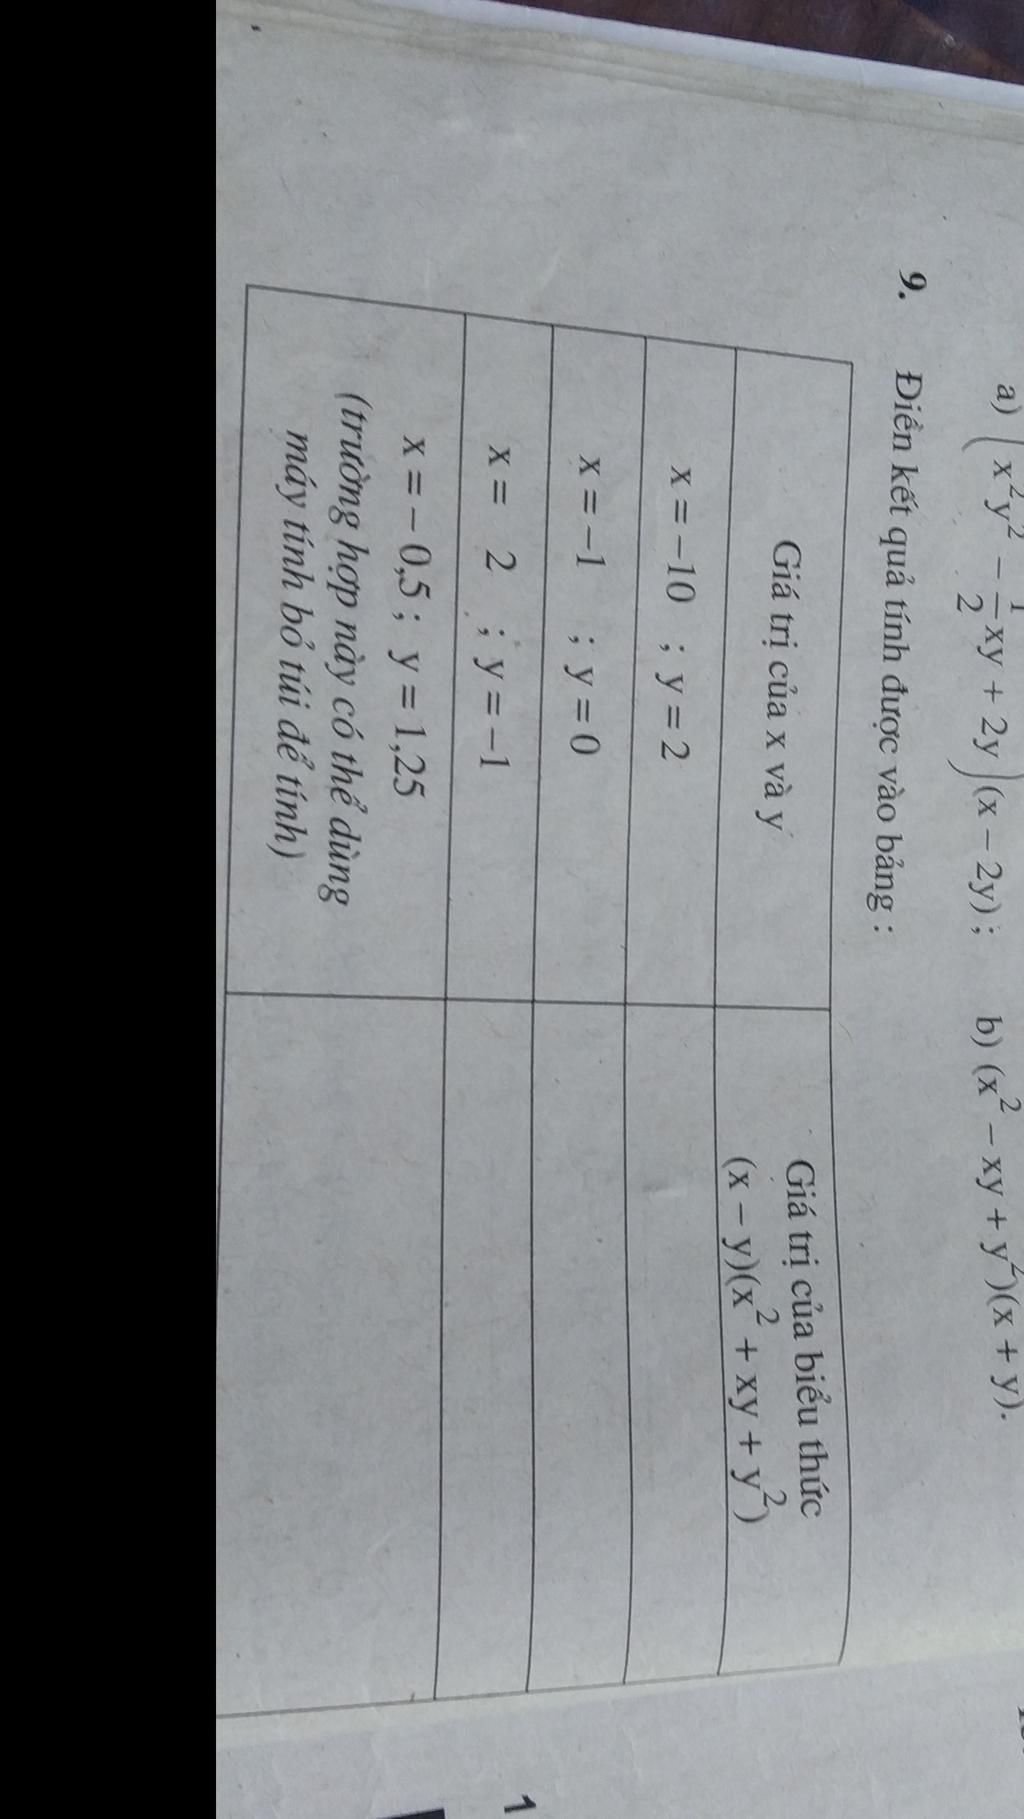 a) (x²y² − 1/2 xy + 2y)(x − 2y) ; b) (x² − xy + y²)(x + y).
9. Điền kết quả tính được vào bảng :
Giá trị của x và y
Giá trị của biểu thức
(x − y)(x² + xy + y²)
x = −10 ; y = 2
x = −1 ; y = 0
x = 2 ; y = −1
x = −0,5 ; y = 1,25
(trường hợp này có thể dùng
máy tính bỏ túi để tính)
1